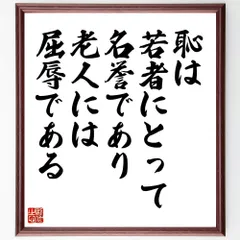 恥は
若者にとって
名誉であり
老人には
屈辱である